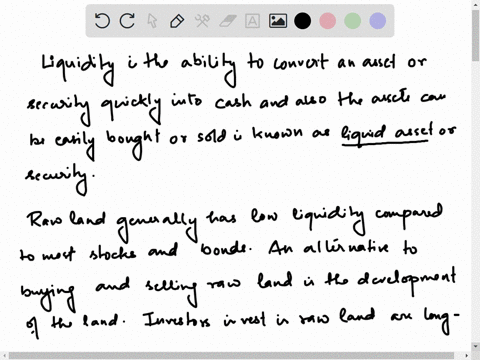 Liquidity is the ability to convert an asset or
security quickly into cash and also the assets can
be easily bought or sold is known as liquid asset or
security.
Raw land generally has low liquidity compared
to most stocks and bonds. An alternative to
buying and selling raw land is the development
of the land. Investors invest in raw land are long-